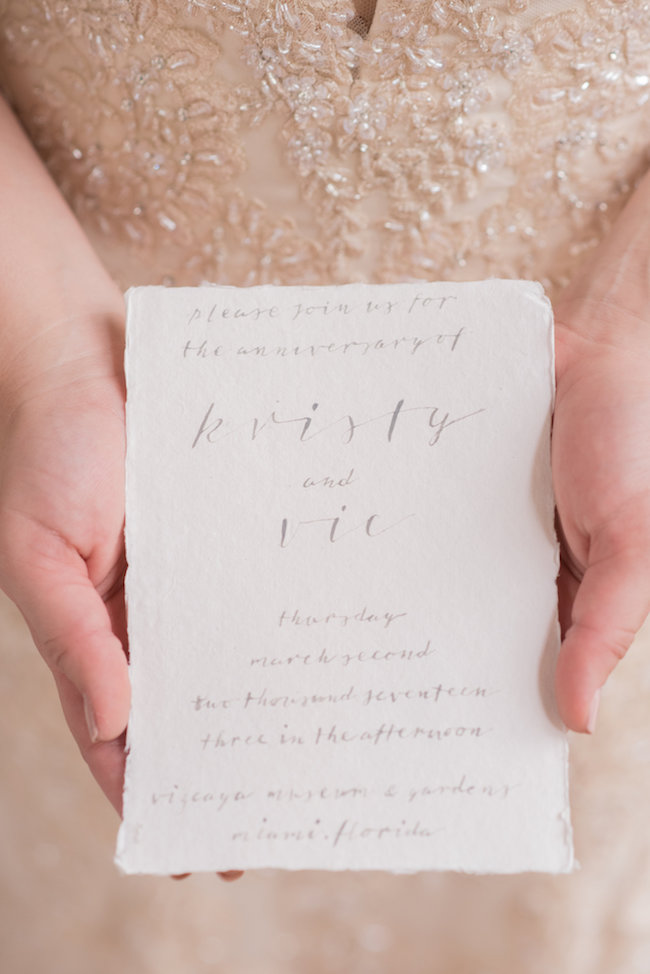 please join us for
the anniversary of
kristy
and
vic
thursday
march second
two thousand seventeen
three in the afternoon
vizcaya museum & gardens
miami, florida